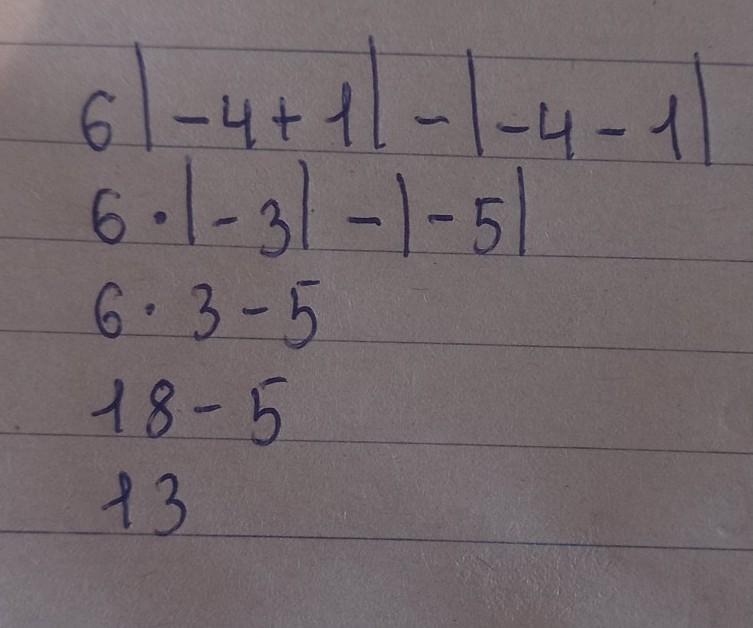 6|-4+1|-|-4-1|
6·|-3|-|-5|
6·3-5
18-5
13